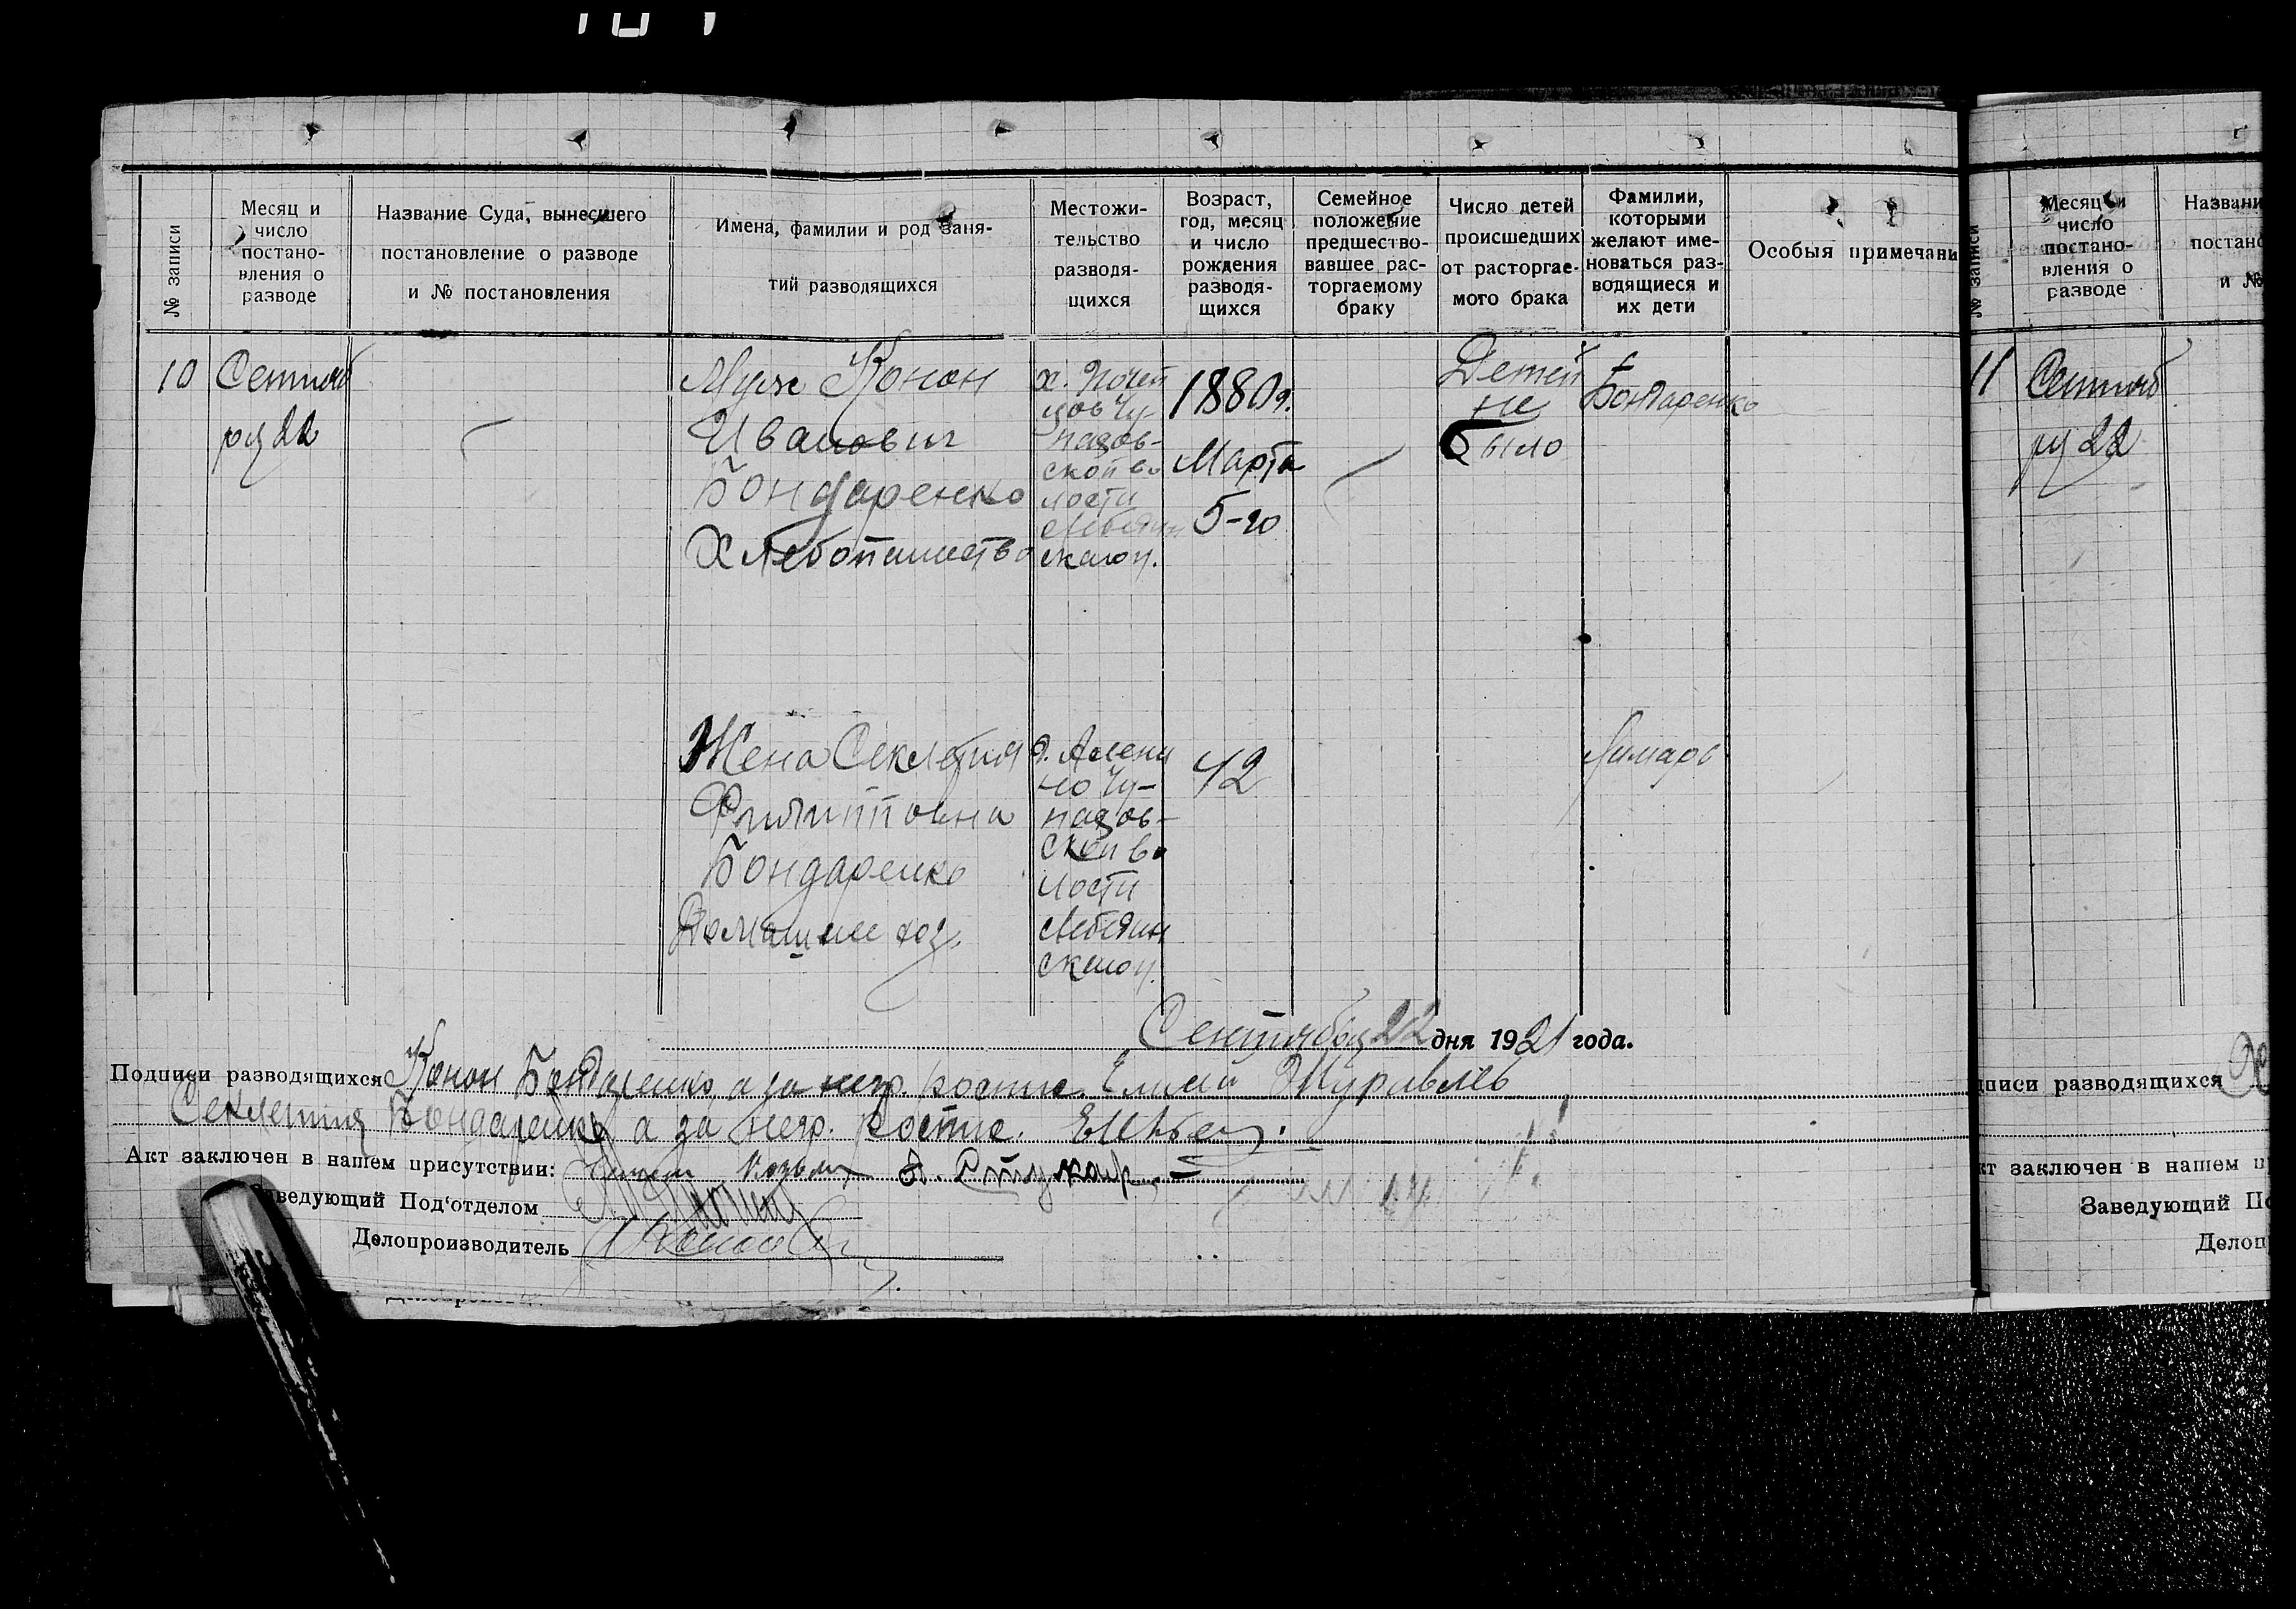 № записи
Месяц и число постановления о разводе
Название Суда, вынесшего
постановление о разводе
и № постановления
Имена, фамилии и род заня-
тий разводящихся
Местожи-
тельство
разводя-
щихся
Возраст,
год, месяц
и число
рождения
разводя-
щихся
Семейное
положение
предшество-
вавшее рас-
торгаемому
браку
Число детей
происшедших
от расторгае-
мого брака
Фамилии,
которыми
желают име-
новаться раз-
водящиеся и
их дети
Особыя примечани
10
Сентяб
ря 22
Муж Конон
Иванович
Бондаренко
Хлебопашество
х.
цов Чу-
пахов-
ской во
лости
Лебедин
скаго у.
1880 г.
Марта
5-го
Детей
не
было
Бондаренко
Жена Секлетия
Филипповна
Бондаренко
Домашнее хоз.
Чу-
пахов-
ской во
лости
Лебедин
скаго у.
42
Лимарь
Сентября 22 дня 1921 года.
Подписи разводящихся Конон Бондаренко, а за негр. роспис. Журавлев
Секлетия Бондаренко а за негр. роспис.
Акт заключен в нашем присутствии:
Заведующий Под'отделом
Делопроизводитель
№ записи
Месяц и
число
постано-
вления о
разводе
Названи
постано
и №
11
Сентяб
ря 22
дписи разводящихся
кт заключен в нашем п
Заведующий По
Делоп